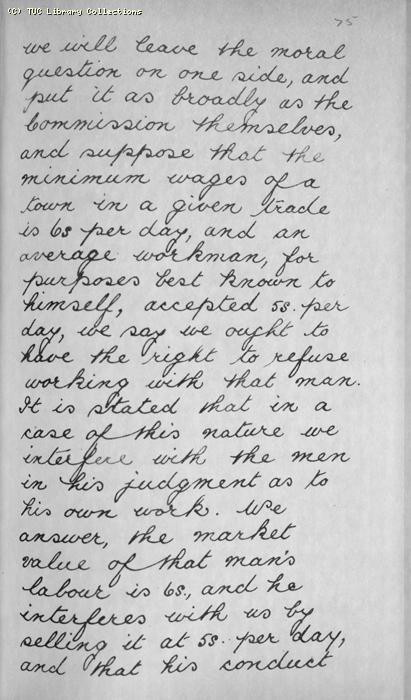 (C) TUC Library Collections
75
we will leave the moral
question on one side, and
put it as broadly as the
Commission themselves,
and suppose that the
minimum wages of a
town in a given trade
is 6s per day, and an
average workman, for
purposes best known to
himself, accepted 5s. per
day, we say we ought to
have the right to refuse
working with that man.
It is stated that in a
case of this nature we
interfere with the men
in his judgment as to
his own work. We
answer, the market
value of that man's
labour is 6s., and he
interferes with us by
selling it at 5s. per day,
and that his conduct